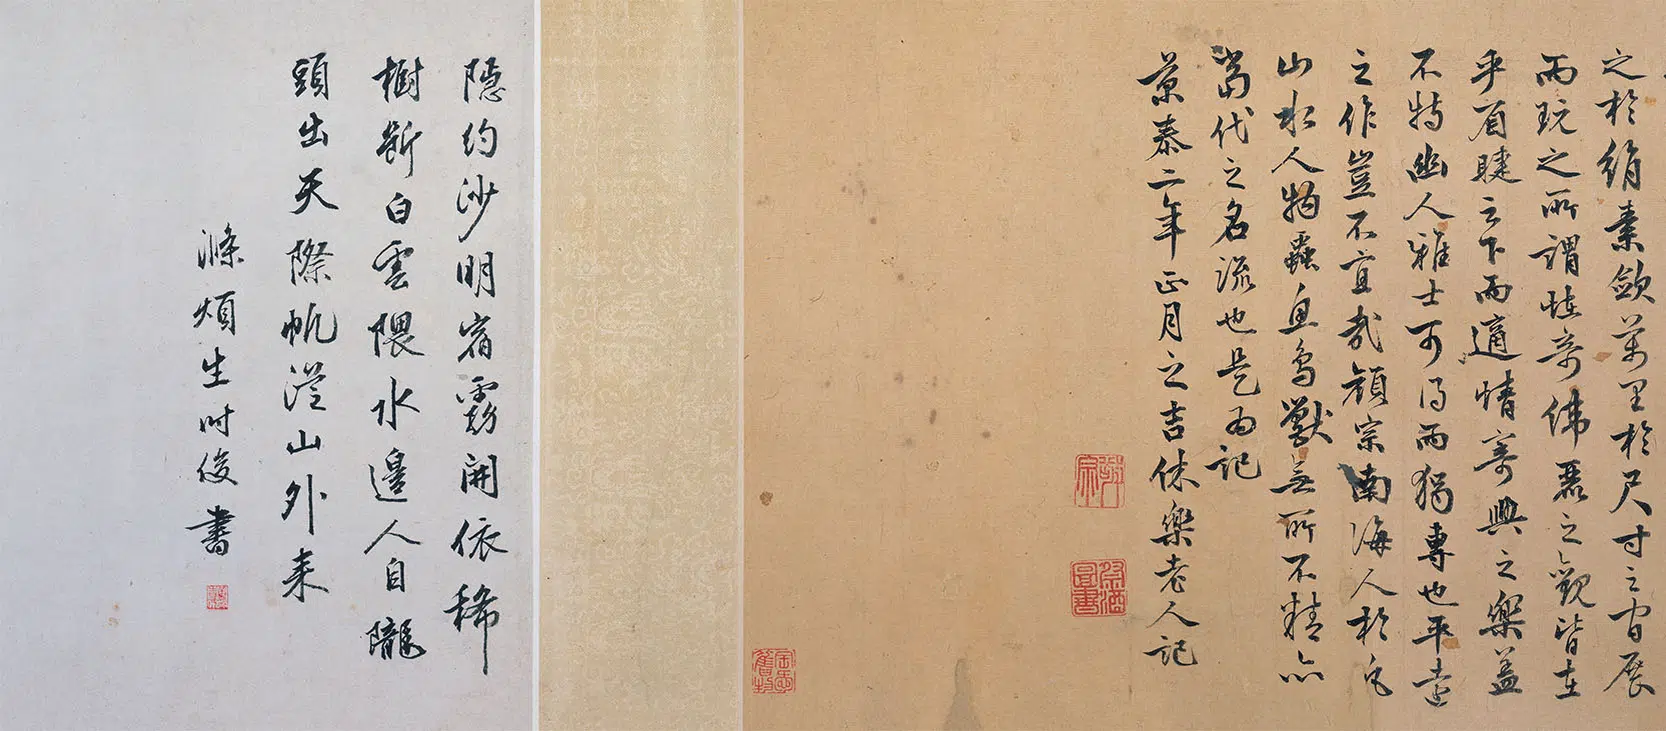 之於絹素歛萬里於尺寸之間展
而玩之所謂恠奇佛麗之觀皆在
乎眉睫之下而適情寄興之樂蓋
不特幽人雅士可得而獨專也平遠
之作豈不宜哉顏宗南海人於凡
山水人物蟲魚鳥獸無所不精亦
當代之名流也是為記
景泰二年正月之吉休樂老人記
祭酒圖書
隱約沙明宿霧開依稀
樹斷白雲隈水邊人自隴
頭出天際帆從山外來
滌煩生時俊書